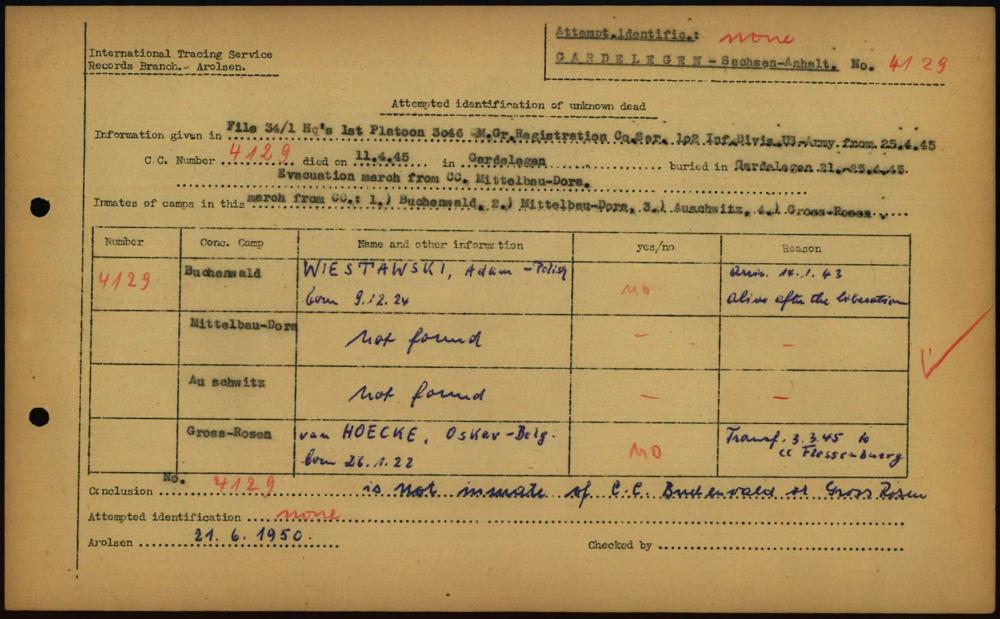 International Tracing Service
Records Branch.- Arolsen.
Attempt.identific.: none
GARDELEGEN - Sachsen-Anhalt. No. 4129
Attempted identification of unknown dead
Information given in File 34/1 Hq's 1st Platoon 3046 M.Gr.Registration Co.Ser. 102 Inf.Divis.US-Army from 25.4.45
C.C. Number 4129 died on 11.4.45 in Gardelegen buried in Gardelegen 21.-25.4.45.
Evacuation march from CC. Mittelbau-Dora.
Inmates of camps in this march from CC.: 1.) Buchenwald, 2.) Mittelbau-Dora, 3.) Auschwitz, 4.) Gross-Rosen
Number Conc. Camp Name and other information yes/no Reason
4129 Buchenwald WIESTAWSKI, Adam - Polish born 9.12.24 no Arriv. 14.1.43 alive after the liberation
Mittelbau-Dora not found - -
Au schwitz not found - -
Gross-Rosen van HOECKE, Oskar - Belg. born 26.1.22 NO Transf. 3.3.45 to CC Flossenbuerg
Conclusion No. 4129 is not inmate of C.C. Buchenwald or Gross Rosen
Attempted identification none
Arolsen 21. 6. 1950.
Checked by